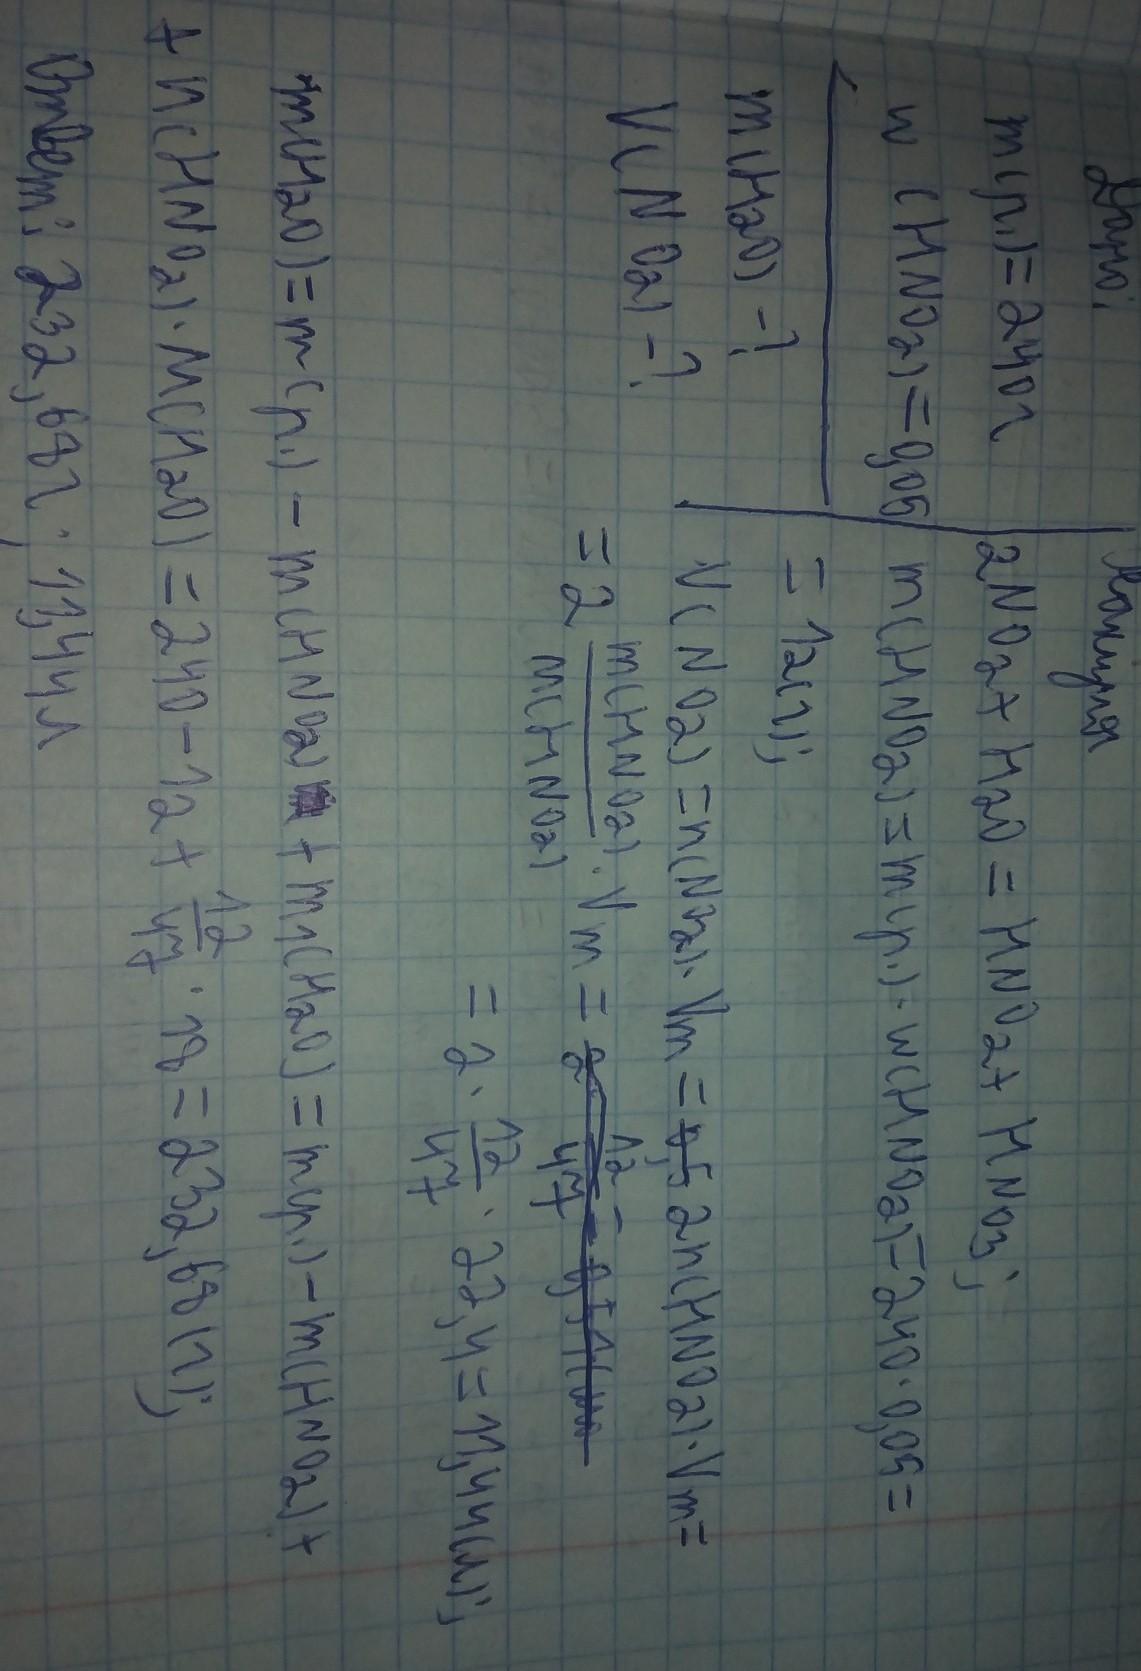 Дано:
m(р.)=240г
w (HNO2)=0,05
m(H2O) -?
V(NO2) -?
2NO2+H2O=HNO2+HNO3;
m(HNO2)=m(р.)·w(HNO2)=240·0,05=
=12(г);
V(NO2)=n(NO2)·Vm=2n(HNO2)·Vm=
=2 m(HNO2)/m(HNO2) · Vm =
=2·12/47·22,4=11,44(л);
m(H2O)=m(р.)-m(HNO2)+m1(H2O)=m(р.)-m(HNO2)+
+n(HNO2)·M(H2O)=240-12+12/47·18=232,68(г);
Ответ: 232,68г; 11,44л